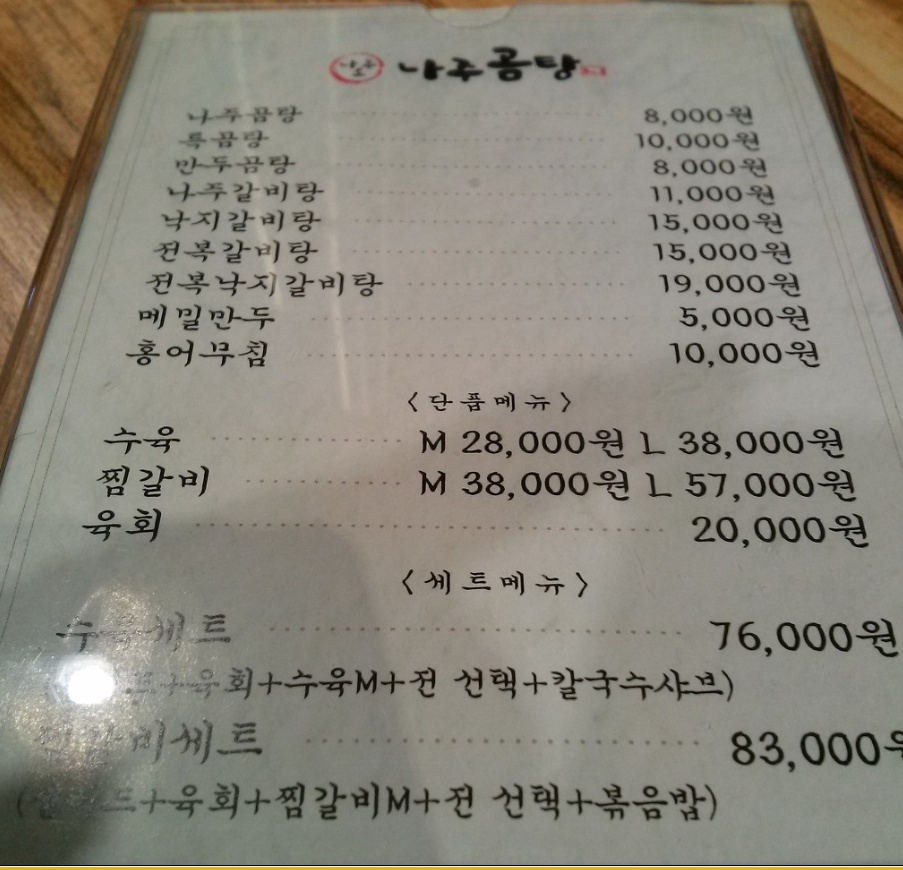 나주곰탕
나주곰탕 8,000원
특곰탕 10,000원
만두곰탕 8,000원
나주갈비탕 11,000원
낙지갈비탕 15,000원
전복갈비탕 15,000원
전복낙지갈비탕 19,000원
메밀만두 5,000원
홍어무침 10,000원
〈단품메뉴〉
수육 M 28,000원 L 38,000원
찜갈비 M 38,000원 L 57,000원
육회 20,000원
〈세트메뉴〉
수육세트 76,000원
+육회+수육M+전 선택+칼국수샤브)
찜갈비세트 83,000원
+육회+찜갈비M+전 선택+볶음밥)